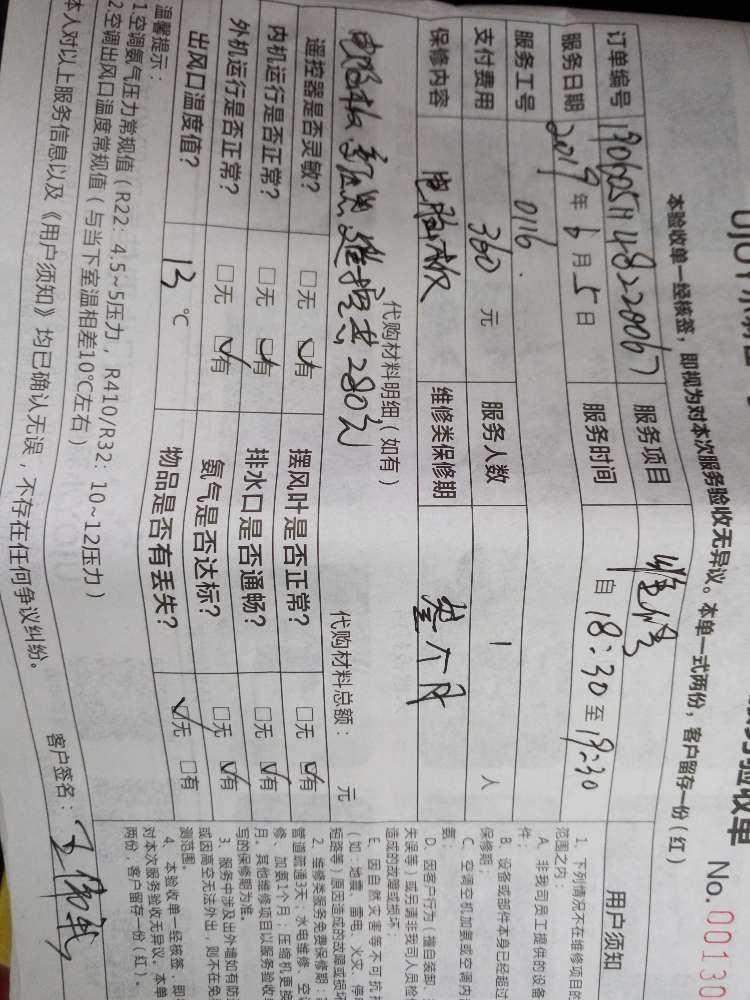 服务验收单
No.00130
本验收单一经核签，即视为对本次服务验收无异议。本单一式两份，客户留存一份（红）
订单编号 服务项目 维修
服务日期 2019年6月5日 服务时间 自18:30至19:30
服务工号 0116.
支付费用 360元 服务人数 1 人
保修内容 电脑板 维修类保修期 叁个月
代购材料明细（如有） 代购材料总额： 元
遥控器是否灵敏？ □无 ☑有 摆风叶是否正常？ □无 ☑有
内机运行是否正常？ □无 ☑有 排水口是否通畅？ □无 ☑有
外机运行是否正常？ □无 ☑有 氨气是否达标？ □无 ☑有
出风口温度值？ 13℃ 物品是否有丢失？ ☑无 □有
温馨提示：
1空调氨气压力常规值（R22：4.5~5压力，R410/R32：10~12压力）
2空调出风口温度常规值（与当下室温相差10℃左右）
本人对以上服务信息以及《用户须知》均已确认无误，不存在任何争议纠纷。
客户签名：
用户须知
1、下列情况不在维修项目的
范围之内：
A、非我司员工提供的设备
件；
B、设备或部件本身已经超过
保修期；
C、空调空机加氨或空调内
氨；
D、因客户行为（擅自装卸、
失误等）或另请非我司人员检
造成的故障或损坏；
E、因自然灾害等不可抗
（如：地震、雷电、火灾、停
短路等）原因造成的故障或损坏
2、维修类服务免费保修期：
普通疏通3天；水电维修、空
修、加氨1个月；压缩机更换
月。其他维修项目以服务验收
写的保修期为准。
3、服务中涉及出外墙如有防
或因高空无法外出，则不在免
测范围。
4、本验收单一经核签，即
对本次服务验收无异议。本单
两份，客户留存一份（红）。